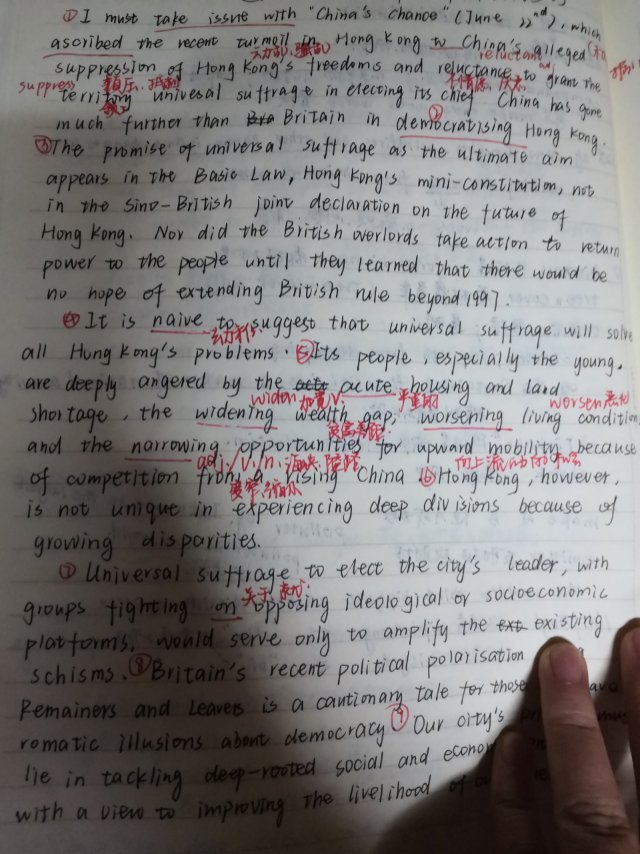 ① I must take issue with "China's chance" (June 22nd), which
ascribed the recent turmoil in Hong Kong to China's alleged
动乱, 骚乱 reluctant adj
suppression of Hong Kong's freedoms and reluctance to grant the
suppress 镇压, 抑制 不情愿
territory univesal suffrage in electing its chief ② China has gone
much further than Britain in democratising Hong Kong.
③ The promise of universal suffrage as the ultimate aim
appears in the Basic Law, Hong Kong's mini-constitution, not
in the Sino-British joint declaration on the future of
Hong Kong. Nor did the British overlords take action to return
power to the people until they learned that there would be
no hope of extending British rule beyond 1997.
④ It is naive to suggest that universal suffrage will solve
all Hong Kong's problems. ⑤ Its people, especially the young,
are deeply angered by the acute housing and land
widen 加宽 v. 严重的 worsen 恶化
shortage, the widening wealth gap, worsening living condition
贫富差距
and the narrowing opportunities for upward mobility because
adj. / v. / n. 向上流动的机会
of competition from a rising China ⑥ Hong Kong, however,
变窄
is not unique in experiencing deep divisions because of
growing disparities.
⑦ Universal suffrage to elect the city's leader, with
关于
groups fighting on opposing ideological or socioeconomic
platforms, would serve only to amplify the existing
schisms. ⑧ Britain's recent political polarisation
Remainers and Leavers is a cautionary tale for those
romatic illusions about democracy ⑨ Our city's
lie in tackling deep-rooted social and
with a view to improving the livelihood of